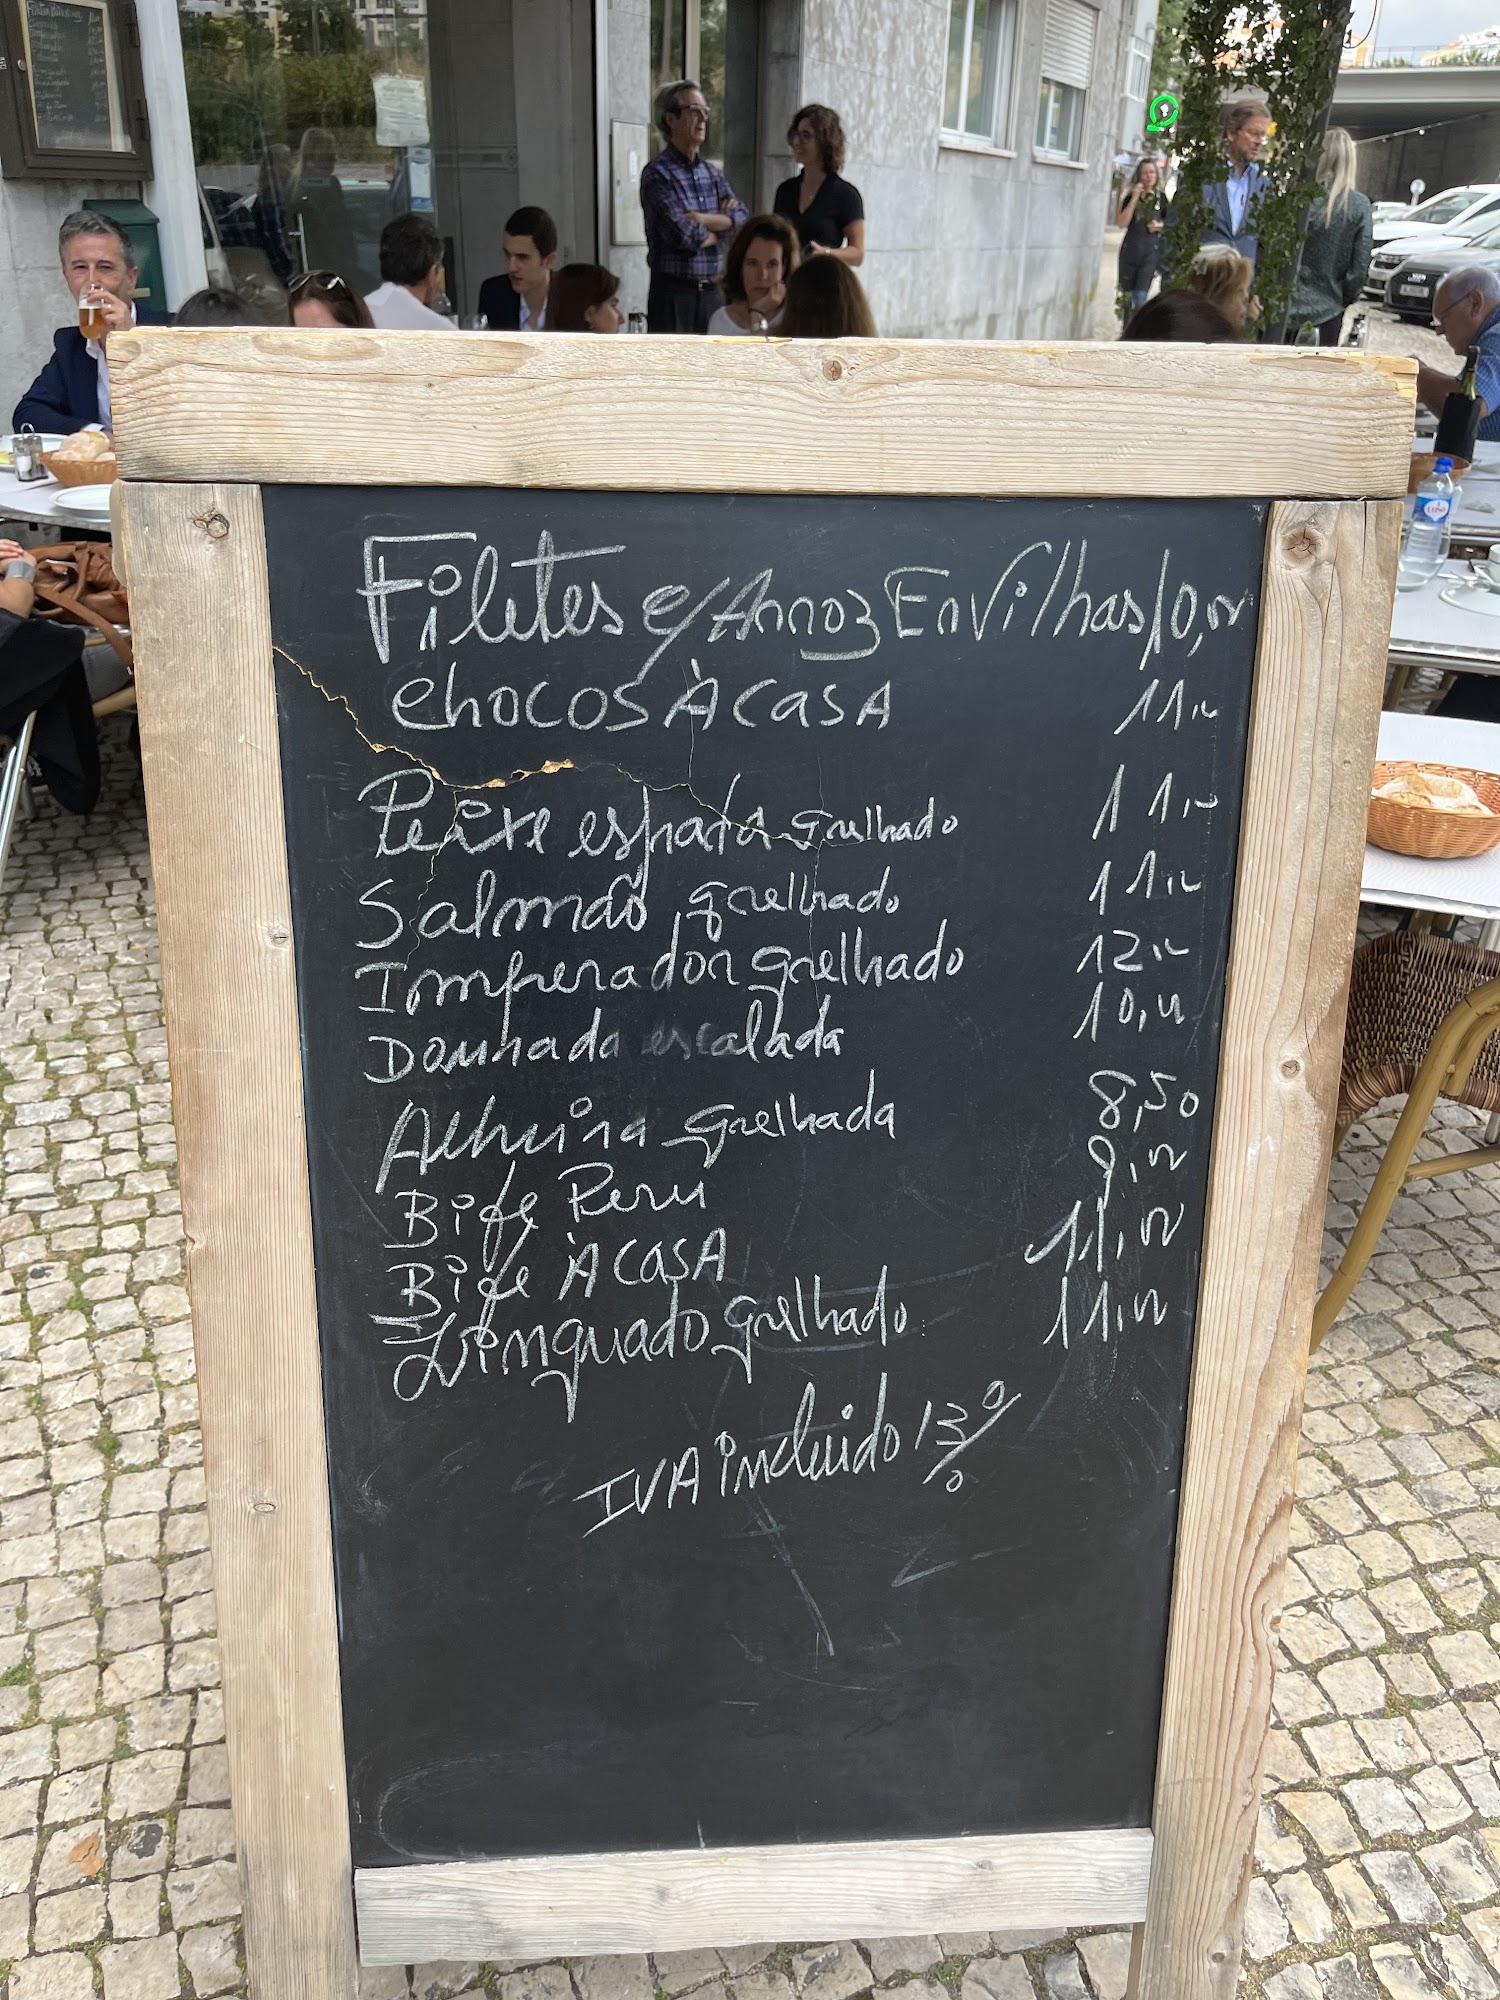 Filetes c/ Arroz Envilhas 10,00
Chocos À Casa 11,00
Peixe espada Grelhado 11,00
Salmão grelhado 11,00
Imperador grelhado 12,00
Dourada escalada 10,00
Alheira grelhada 8,50
Bife Peru 9,00
Bife À Casa 11,00
Linguado grelhado 11,00
IVA incluido 13%
LUSO